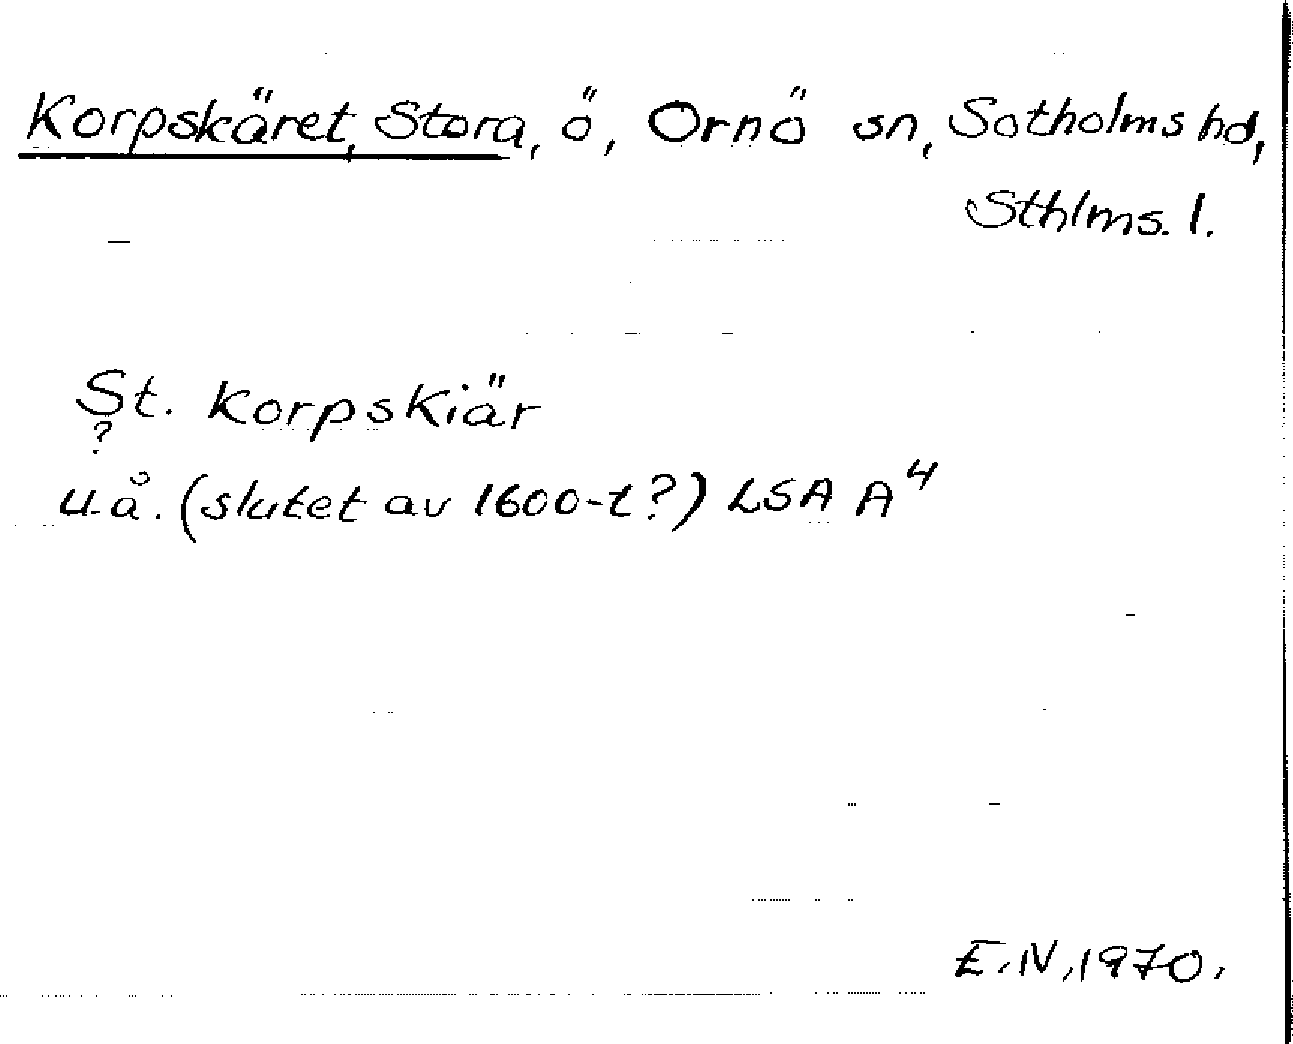 Korpskäret, Stora, ö, Ornö sn, Sotholms hd,
Sthlms. l.
St. Korpskiär
?
u.å. (slutet av 1600-t?) LSA A⁴
E.N, 1970.